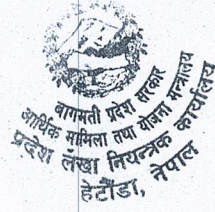 बागमती प्रदेश सरकार
आर्थिक मामिला तथा योजना मन्त्रालय
प्रदेश लेखा नियन्त्रक कार्यालय
हेटौंडा, नेपाल